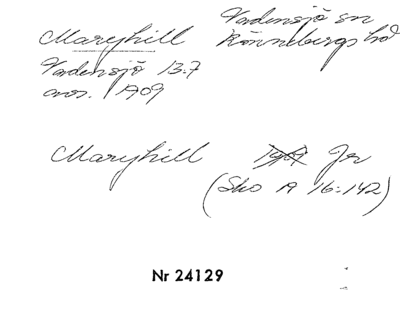 Maryhill
Vadensjö sn
Rönnebergs hd
Vadensjö 13:7
avs. 1909
Maryhill 1909 Jr
(Sko A 16:142)
Nr 24129